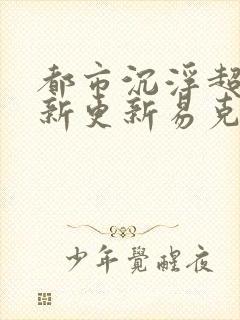 都市沉浮超
新更新易克
少年觉醒夜